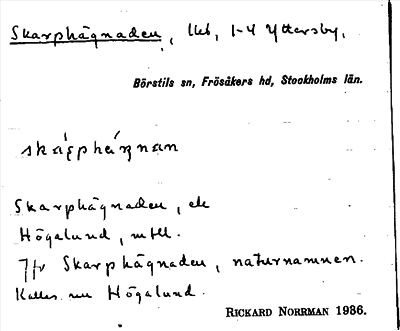 Skarphägnaden, lht, 1-4 Yttersby,
Börstils sn, Frösåkers hd, Stockholms län.
Skarphägnaden, el
Högalund, mtl.
Jfr Skarphägnaden, naturnamnen.
Kallas nu Högalund.
RICKARD NORRMAN 1936.